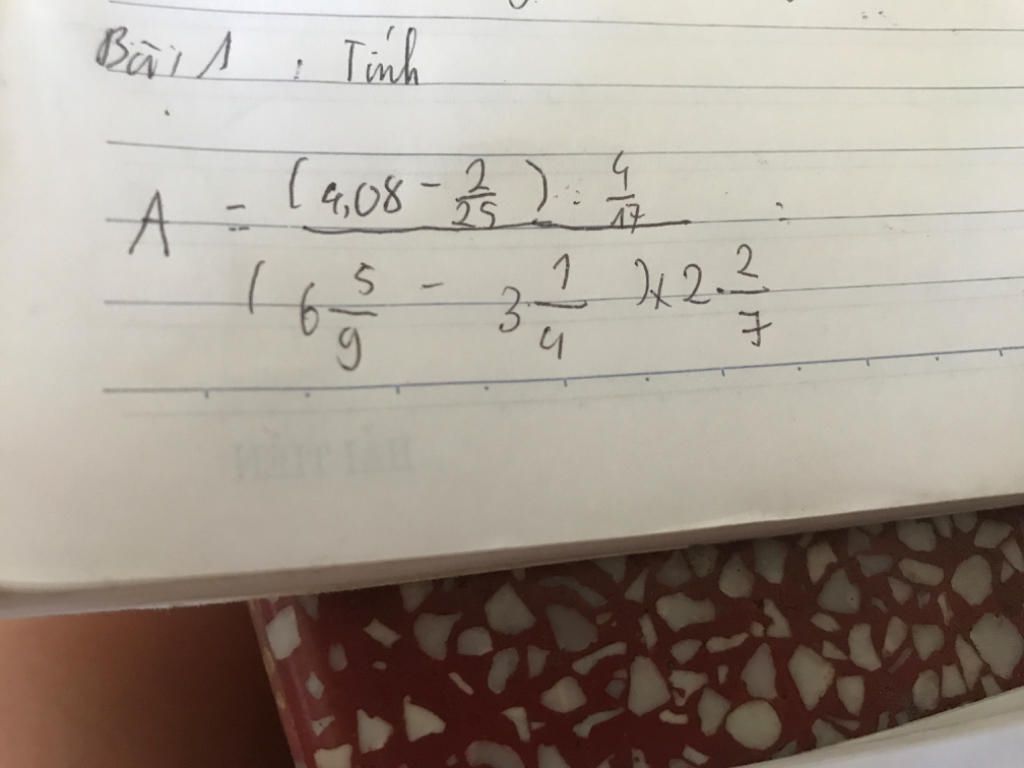 Bài 1 : Tính
A = (4,08 - 2/25) : 4/17 :
(6 5/9 - 3 1/4) x 2 2/7